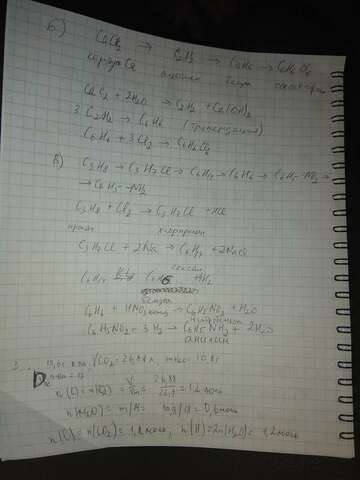 Б) CaC₂ → C₂H₂ → C₆H₆ → C₆H₆Cl₆
карбид Ca ацетилен бензол
CaC₂ + 2H₂O → C₂H₂ + Ca(OH)₂
3 C₂H₂ → C₆H₆ (тримеризация)
C₆H₆ + 3Cl₂ → C₆H₆Cl₆
В) C₃H₈ → C₃H₇Cl → C₆H₁₄ → C₆H₆ → C₆H₅-NO₂ →
→ C₆H₅-NH₂
C₃H₈ + Cl₂ → C₃H₇Cl + HCl
пропан хлорпропан
C₃H₇Cl + 2Na → C₆H₁₄ + 2NaCl
гексан
C₆H₁₄ → C₆H₆ + 4H₂
бензол
C₆H₆ + HNO₃ конц → C₆H₅NO₂ + H₂O
нитробензол
C₆H₅NO₂ + 3H₂ → C₆H₅NH₂ + 2H₂O
анилин
3. V CO₂ = 26,88 л, 10,8 г
n(C) = n(CO₂) = V/Vm = 26,88/22,4 = 1,2 моль
n(H₂O) = m/M = 0,6 моль
n(C) = n(CO₂) = 1,2 моль, n(H) = 2n(H₂O) = 1,2 моль